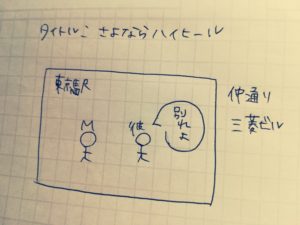 タイトル：さよならハイヒール
東京駅
M
彼
別れよ
仲通り
三菱ビル